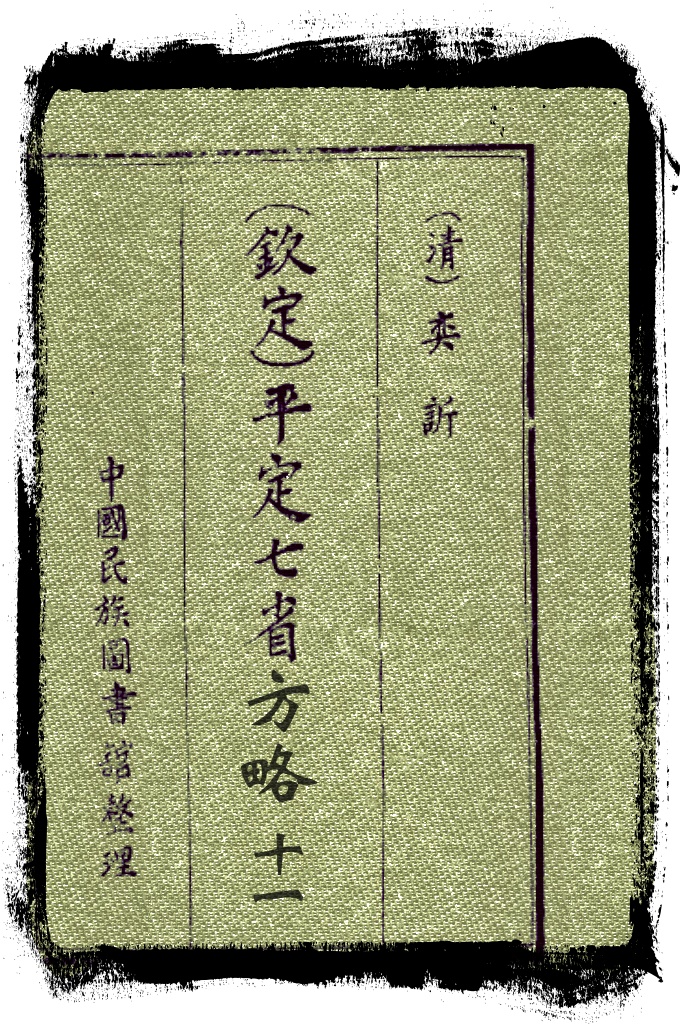 （清）奕訢
（欽定）平定七省方略 十一
中國民族圖書館整理